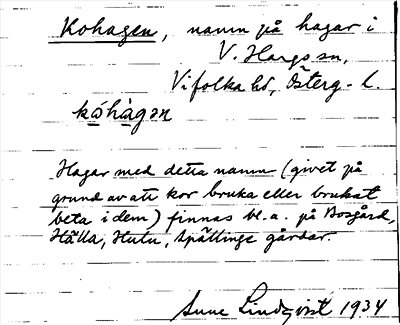 Kohagen, namn på hagar i
V. Hargs sn,
Vifolka hd, Österg. l.
kóhàgən
Hagar med detta namn (givet på
grund av att kor bruka eller brukat
beta i dem) finnas bl. a. på Bosgård,
Hälla, Hulu, Spällinge gårdar.
Sune Lindqvist 1934